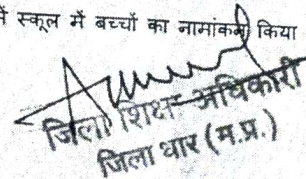 में स्कूल में बच्चों का नामांकन किया
जिला शिक्षा अधिकारी
जिला धार (म.प्र.)